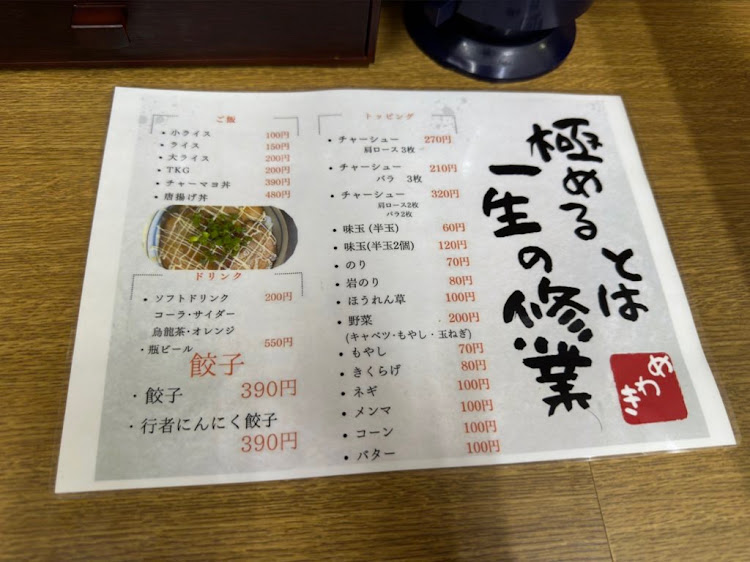 ご飯
・小ライス 100円
・ライス 150円
・大ライス 200円
・TKG 200円
・チャーマヨ丼 390円
・唐揚げ丼 480円
ドリンク
・ソフトドリンク 200円
コーラ・サイダー
烏龍茶・オレンジ
・瓶ビール 550円
餃子
・餃子 390円
・行者にんにく餃子
390円
トッピング
・チャーシュー 270円
肩ロース3枚
・チャーシュー 210円
バラ 3枚
・チャーシュー 320円
肩ロース2枚
バラ2枚
・味玉(半玉) 60円
・味玉(半玉2個) 120円
・のり 70円
・岩のり 80円
・ほうれん草 100円
・野菜 200円
(キャベツ・もやし・玉ねぎ)
・もやし 70円
・きくらげ 80円
・ネギ 100円
・メンマ 100円
・コーン 100円
・バター 100円
極めるとは
一生の修業
めきわ